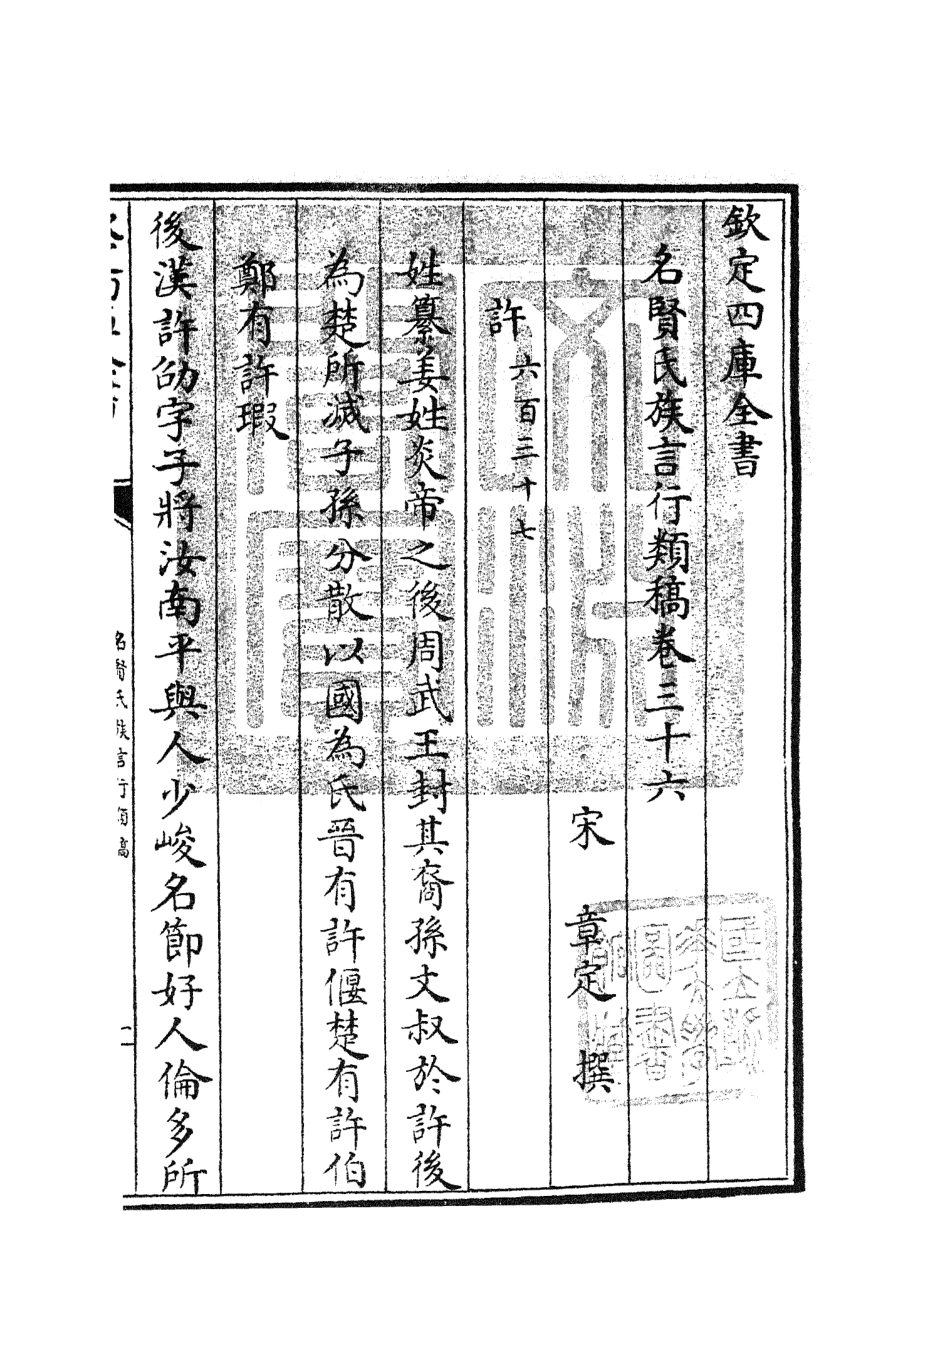 欽定四庫全書
名賢氏族言行類稿卷三十六
宋 章定 撰
許 六百三十七
姓纂姜姓炎帝之後周武王封其裔孫文叔於許後
為楚所滅子孫分散以國為氏晉有許偃楚有許伯
鄭有許瑕
後漢許劭字子將汝南平輿人少峻名節好人倫多所
名賢氏族言行類稿
一